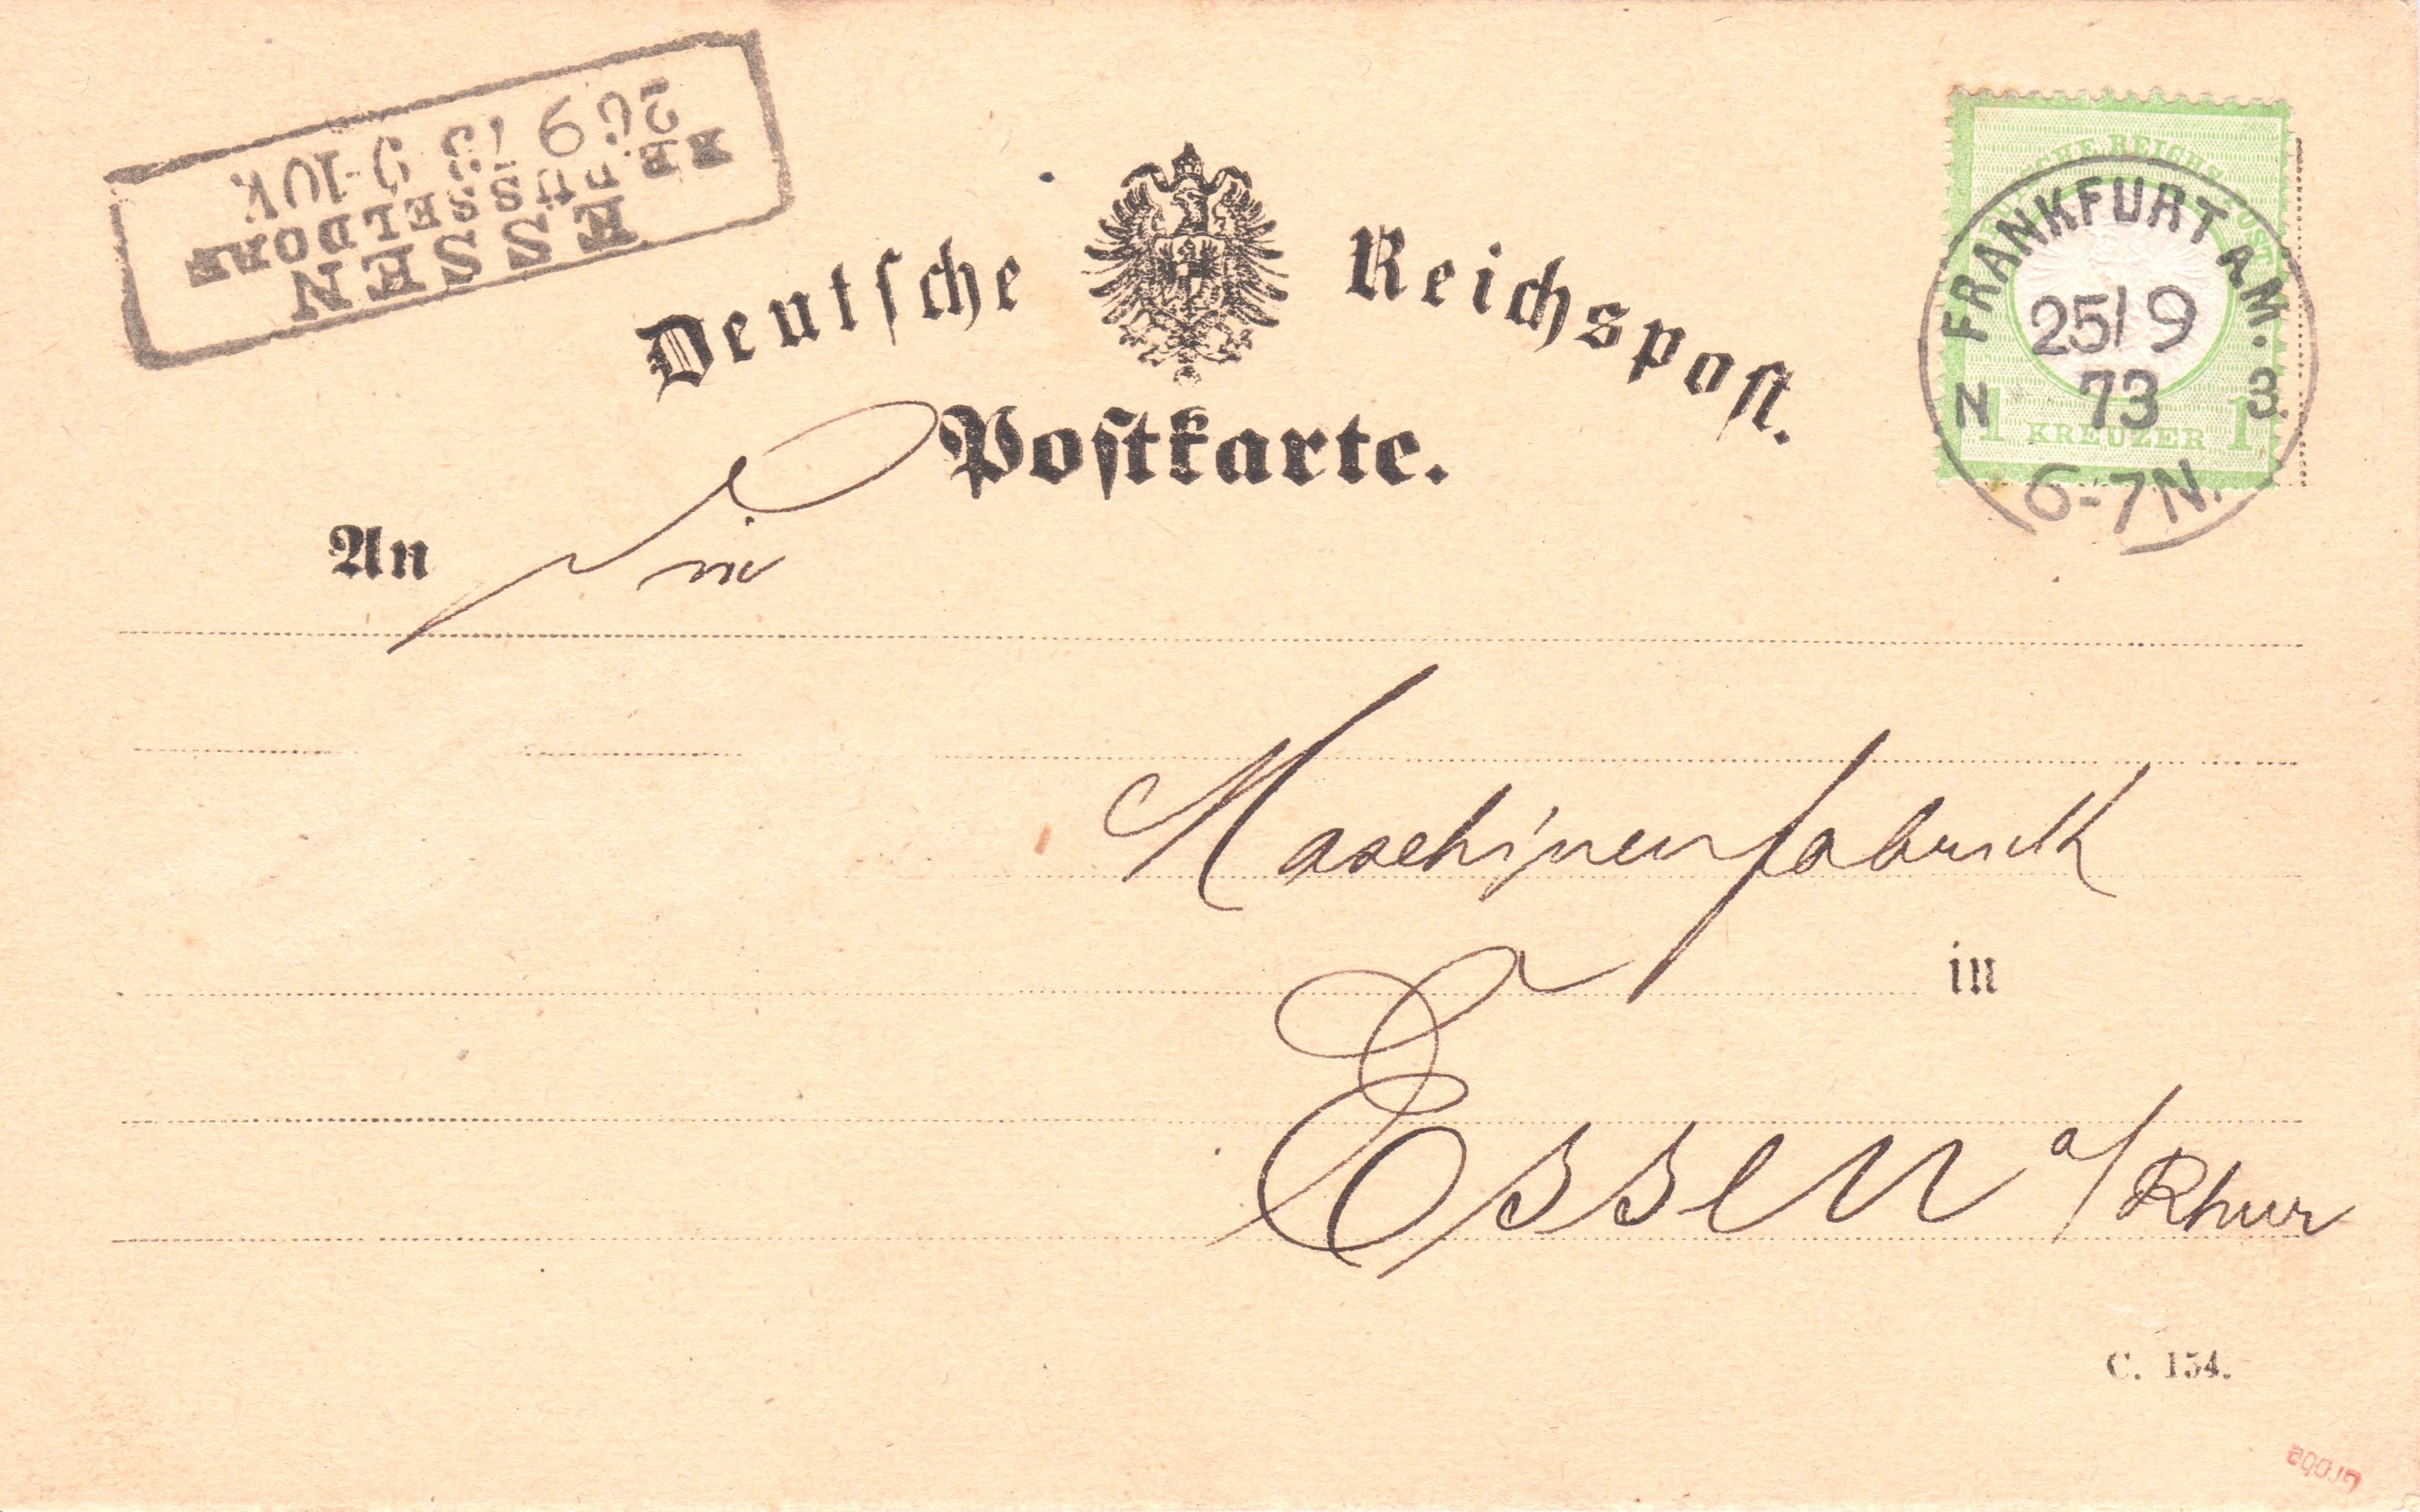 ESSEN
R.B. DÜSSELDORF
26 9 73 9-10V.
Deutsche Reichspost.
DEUTSCHE REICHS-POST
FRANKFURT A.M.
25/9
73
N 3.
1 KREUZER 1
6-7N.
Postkarte.
An Die
Maschinenfabrick
in
Essen a/Rhur
C. 154.